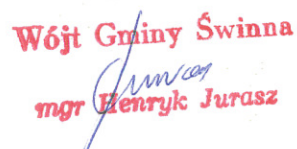 Wójt Gminy Świnna
mgr Henryk Jurasz